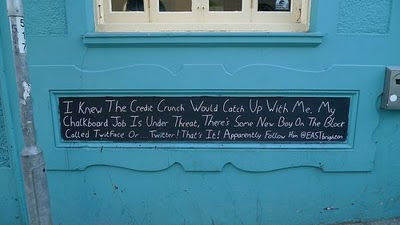 I Knew The Credit Crunch Would Catch Up With Me. My
Chalkboard Job Is Under Threat, There's Some New Boy On The Block
Called TwitFace Or.... Twitter! That's It! Apparently Follow Him @EASTbrighton